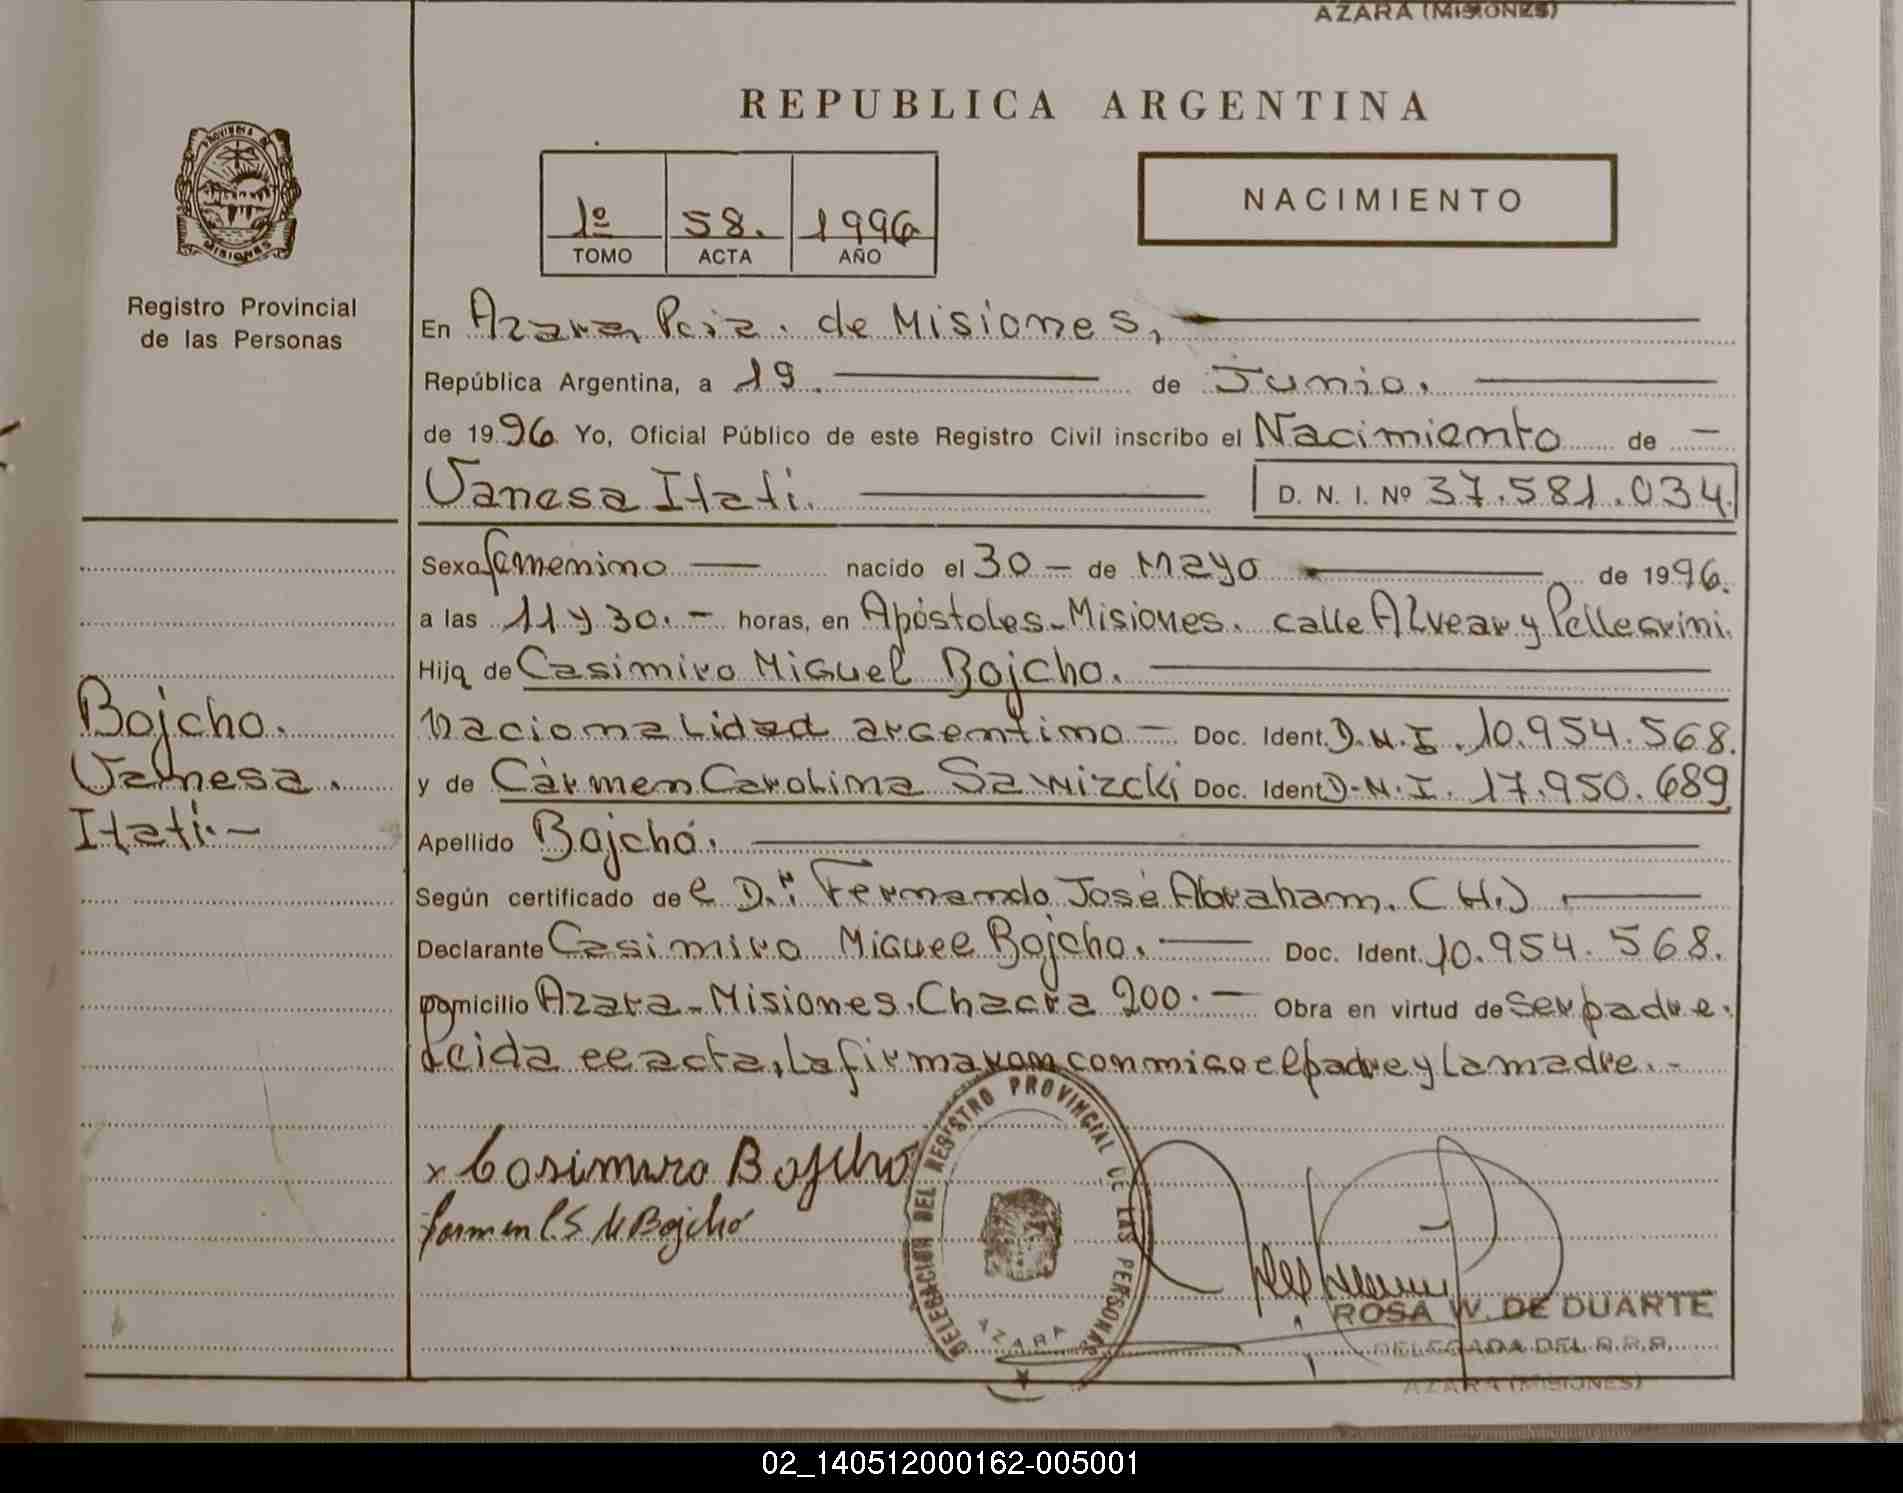 AZARA (MISIONES)
REPUBLICA ARGENTINA
PROVINCIA DE
MISIONES
1º 58. 1996
TOMO ACTA AÑO
NACIMIENTO
Registro Provincial
de las Personas
En Azara, Pcia. de Misiones,
República Argentina, a 19. de Junio.
de 1996. Yo, Oficial Público de este Registro Civil inscribo el Nacimiento de -
Vanesa Itatí. D. N. I. Nº 37.581.034.
Sexo femenino — nacido el 30 - de Mayo de 1996.
a las 11 y 30. - horas, en Apóstoles - Misiones. calle Alvear y Pellegrini.
Hija de Casimiro Miguel Bojcho.
Nacionalidad argentino - Doc. Ident. D.N.I. 10.954.568.
y de Cármen Carolina Sawizcki Doc. Ident D-N.I. 17.950.689
Apellido Bojchó.
Según certificado del Dr: Fernando José Abraham. (H.)
Declarante Casimiro Miguel Bojcho. — Doc. Ident. 10.954.568.
Domicilio Azara - Misiones. Chacra 200. - Obra en virtud de ser padre.
Leida el acta, la firmaron conmigo el padre y la madre. -
Bojcho.
Vanesa.
Itatí. -
x Casimiro Bojcho
Carmen C. S. de Bojchó
DELEGACION DEL REGISTRO PROVINCIAL DE LAS PERSONAS
AZARA
ROSA W. DE DUARTE
DELEGADA DEL R.P.P.
AZARA (MISIONES)
02_140512000162-005001